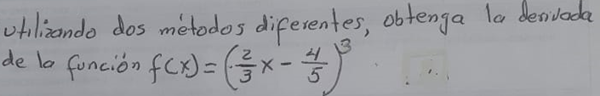 utilizando dos métodos diferentes, obtenga la derivada
de la función f(x) = (2/3 x - 4/5)^3